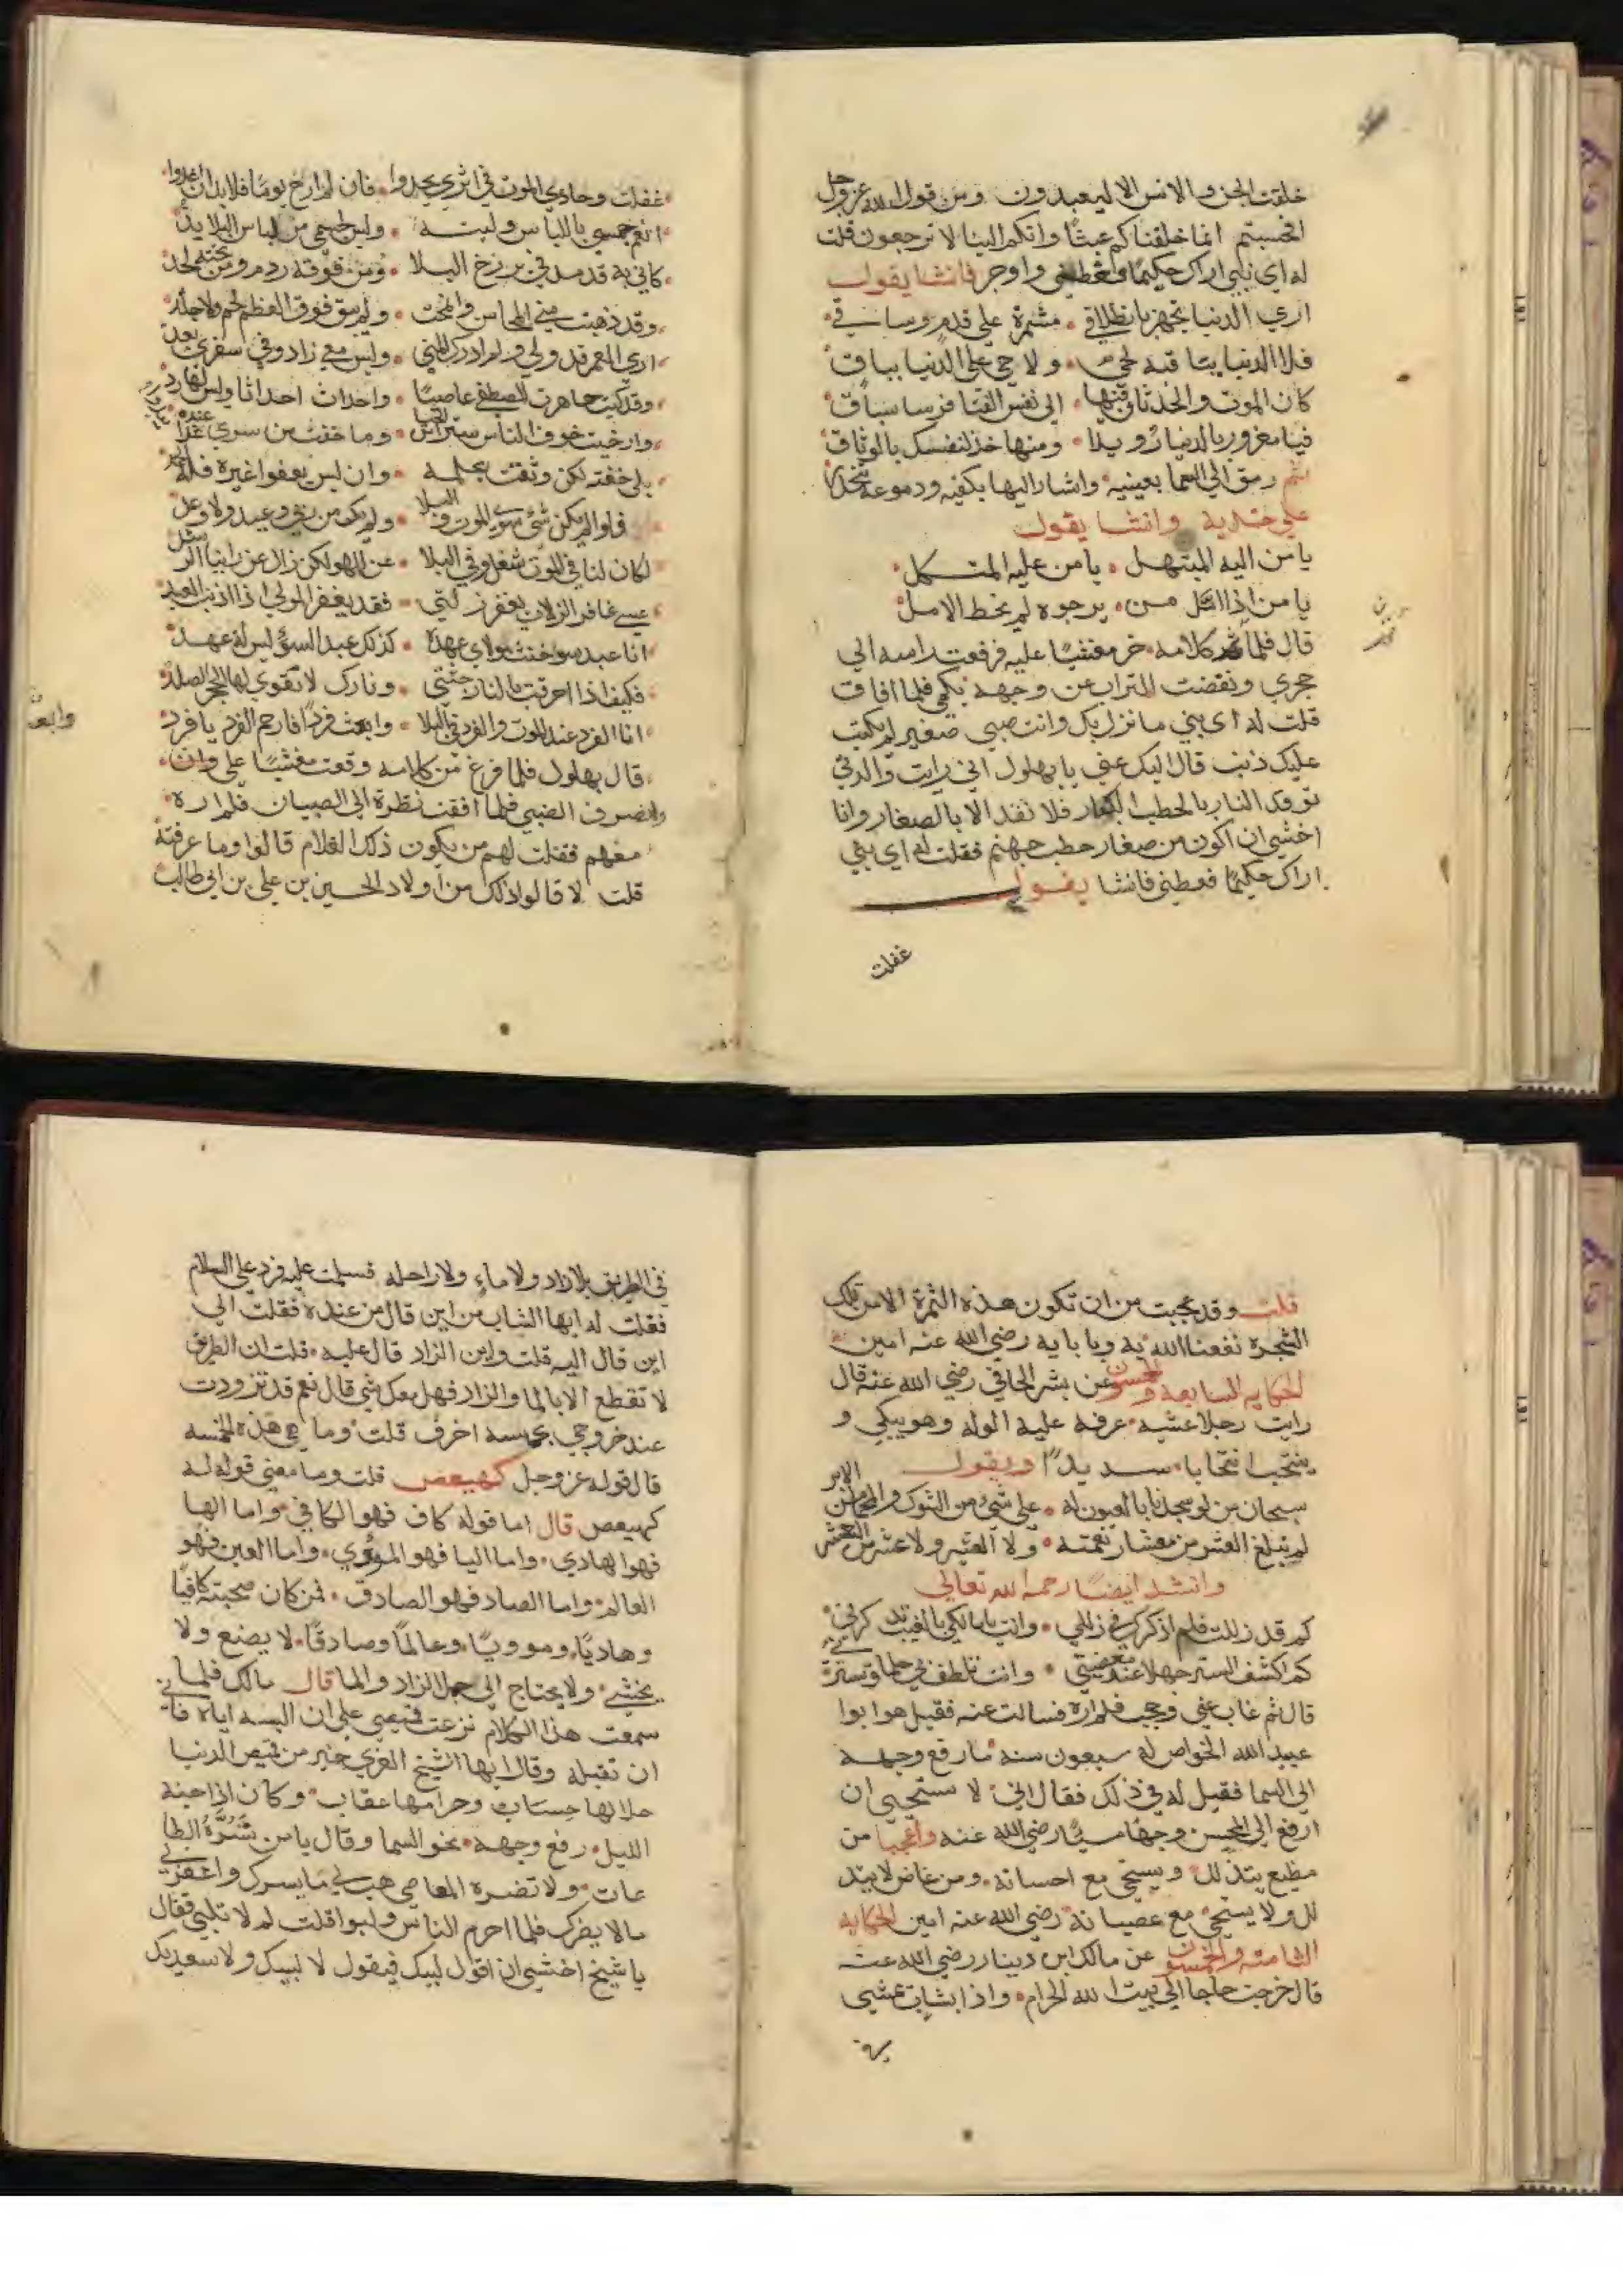 خلقت الجن والانس الا ليعبدون ومن قول الله عز وجل
افحسبتم انما خلقناكم عبثا وانكم الينا لا ترجعون قلت
له اي بني اراك حكيما فعظني واوجز فانشا يقول
اري الدنيا تجهز بانطلاق • مشمرة علي قدم وساق
فلا الدنيا بباقية لحي • ولا حي علي الدنيا بباق
كان الموت والحدثان فيها • الي نفس الفتا فرسا سباق
فيا مغرور بالدنيا رويدا • ومنها خذ لنفسك بالوثاق
ثم رمق الي السما بعينيه واشار اليها بكفيه ودموعه تتحدر
علي خديه وانشا يقول
يا من اليه المبتهل • يا من عليه المتكل
يا من اذا ما • يرجوه لم يخط الامل
قال فلما تم كلامه خر مغشيا عليه فرفعت راسه الي
حجري ونفضت التراب عن وجهه بكمي فلما افاق
قلت له اي بني ما نزل بك وانت صبي صغير لم يكتب
عليك ذنب قال اليك عني يا بهلول اني رايت والدتي
توقد النار بالحطب الكبار فلا تقد الا بالصغار وانا
اخشي ان اكون من صغار حطب جهنم فقلت له اي بني
اراك حكيما فعظني فانشا يقول
غفلت
غفلت وحادي الموت في اثري يحدوا • فان لم ارح يوما فلا بد ان اغدوا
انعم جسمي باللباس ولينه • وليس لجسمي من لباس البلا بد
كاني به قد مد في برزخ البلا • ومن فوقه ردم ومن تحته لحد
وقد ذهبت مني المحاسن وانمحت • ولم يبق فوق العظم لحم ولا جلد
اري العمر قد ولي ولم ادرك المني • وليس معي زاد وفي سفري بعد
وقد كنت جاهرت عاصيا • واحدثت احداثا وليس لها رد
وارخيت خوف الناس سترا من الحيا • وما خفت من سري غدا عنده
بلي خفته لكن وثقت بحلمه • وان ليس يعفوا غيره فله الحمد
فلو لم يكن شي سوي الموت والبلا • ولم يكن من ربي وعيد ولا وعد
لكان لنا في الموت شغل وفي البلا • عن اللهو لكن زال عن راينا الرشد
عسي غافر الزلات يغفر زلتي • فقد يغفر المولي اذا اذنب العبد
انا عبد سو خنت مولاي عهده • كذلك عبد السؤ ليس له عهد
فكيف اذا احرقت بالنار جثتي • ونارك لا تقوي لها الحجر الصلد
انا الفرد عند الموت والفرد في البلا • وابعث فردا فارحم الفرد يا فرد
قال بهلول فلما فرغ من كلامه وقعت مغشيا علي
وانصرف الصبي فلما افقت نظرت الي الصبيان فلم اره
معهم فقلت لهم من يكون ذلك الغلام قالوا وما عرفته
قلت لا قالوا ذلك من اولاد الحسين بن علي بن ابي طالب
قلت وقد عجبت من ان تكون هذه الثمرة الا من تلك
الشجرة نفعنا الله به وبابايه رضي الله عنه امين
الحكايه السابعه والخمسون عن بشر الحافي رضي الله عنه قال
رايت رجلا عشيه عرفه عليه الوله وهو يبكي و
ينتحب انتحابا سديدا ويقول
سبحان من لو سجدنا بالعيون له • علي شي من الشوك والمحما من الابر
لم نبلغ العشر من معشار نعمته • ولا العشير ولا عشر من العشر
وانشد ايضا رحمه الله تعالي
كم قد زللت فلم اذكرك في زللي • وانت يا مالكي بالغيب تذكرني
كم اكشف الستر جهلا عند معصيتي • وانت تلطف بي حلما وتسترني
قال ثم غاب عني وحجب فلم اره فسالت عنه فقيل هو ابوا
عبيد الله الخواص له سبعون سنه ما رفع وجهه
الي السما فقيل له في ذلك فقال اني لا ستحيي ان
ارفع الي المحسن وجها مسيئا رضي الله عنه واعجبا من
مطيع يتذلل ويستحي مع احسانه ومن عاص لا يتذ
لل ولا يستحي مع عصيانه رضي الله عنه امين الحكايه
الثامنه والخمسون عن مالك ابن دينار رضي الله عنه
قال خرجت حاجا الي بيت الله الحرام • واذا بشاب عشي
في الطريق بلا زاد ولا ماء ولا راحله فسلمت عليه فرد علي السلام
فقلت له ايها الشاب من اين قال من عنده فقلت الي
اين قال اليه قلت واين الزاد قال عليه • قلت ان الطريق
لا تقطع الا بالما والزاد فهل معك شي قال نعم قد تزودت
عند خروجي بخمسه احرف قلت وما هي هذه الخمسه
قال قوله عز وجل كهيعص قلت وما معني قوله له
كهيعص قال اما قوله كاف فهو الكافي • واما الها
فهو الهادي • واما اليا فهو الموؤي • واما العين فهو
العالم • واما الصاد فهو الصادق • فمن كان صحبته كافيا
وهاديا وموويا وعالما وصادقا • لا يضيع ولا
يخشي • ولا يحتاج الي حمل الزاد والما قال مالك فلما
سمعت هذا الكلام نزعت قميصي علي ان البسه اياه فابي
ان تقبله وقال ايها الشيخ العري خير من قميص الدنيا
حلالها حساب وحرامها عقاب • وكان اذا جنه
الليل • رفع وجهه نحو السما وقال يا من تسره الطا
عات • ولا تضره المعاصي هب لي ما يسرك واغفر لي
مالا يضرك فلما احرم الناس ولبوا قلت لم لا تلبي فقال
يا شيخ اخشي ان اقول لبيك فيقول لا لبيك ولا سعديك